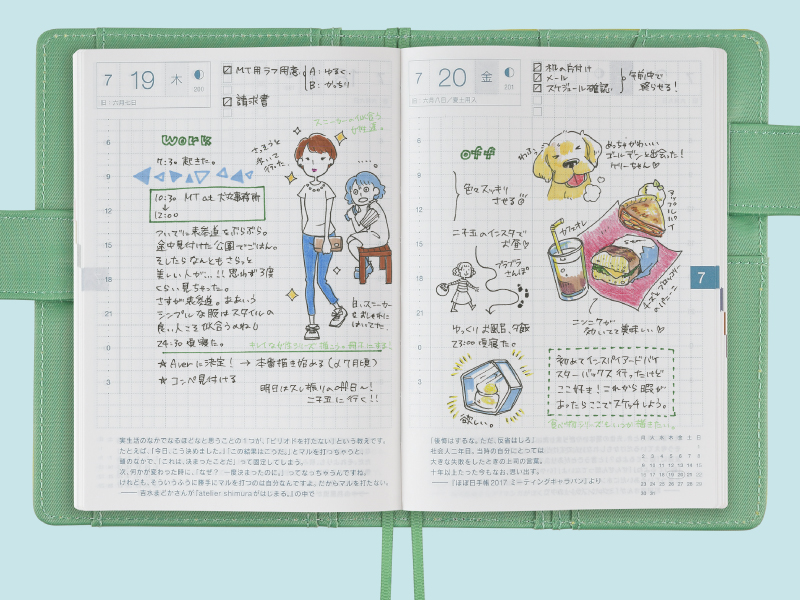 7
19
木
201
旧:六月七日
MT用ラフ用意
A:ゆるく.
B:がっちり
請求書
スニーカーの似合う
女性達。
さっそうと
歩いて
行った.
work
7:30 起きた。
10:30 MT at
12:00
ついでに表参道をぶらぶら。
途中見付けた公園でごはん。
そしたらなんともさらっと
美しい人が…!!思わず3度
くらい見ちゃった。
さすが表参道。ああいう
シンプルな服はスタイルの
良い人こそ似合うのね
24:30 頃寝た。
白いスニーカー
をおしゃれに
はいてた。
★Averに決定! → 本番描き始める(〆7月頃)
★コンペ見付ける
明日は久し振りのoff日〜!
二子玉に行く!!
6
9
12
15
18
21
0
3
実生活のなかでなるほどなと思うことの1つが、「ピリオドを打たない」という教えです。
たとえば、「今日、こう決めました。」「この結果はこうだ。」とマルを打っちゃうと、
頭のなかで、「これは、決まったことだ」って固定してしまう。
次、何かが変わった時に、「なぜ? 一度決まったのに。」ってなっちゃうんですね。
けれども、そういうふうに勝手にマルを打つのは自分なんですよ。だからマルを打たない。
――吉水まどかさんが『atelier shimuraがはじまる。』の中で
7
20
金
201
旧:六月八日/夏土用入
机の片付け
メール
スケジュール確認.
午前中で
終らせる!
off
わふっ
めっちゃかわいい
ゴールデンと出会った!
ゲリーちゃん
色々スッキリ
させる
二子玉のインスタで
お昼
ブラブラ
さんぽ。
カフェオレ
ニンニクが
効いてて美味しい
ゆっくりお風呂、夕飯
23:00 頃寝た。
欲しい。
初めてインスパイアードバイ
スターバックス行ったけど
ここ好き!これから暇が
あったらここでスケッチしよう。
6
9
12
15
18
21
0
3
7
「後悔はするな。ただ、反省はしろ」
社会人二年目。当時の自分にとっては
大きな失敗をしたときの上司の言葉。
十年以上たった今もなお、思い出す。
『ほぼ日手帳2017 ミーティングキャラバン』より
月 火 水 木 金 土 日
1
2 3 4 5 6 7 8
9 10 11 12 13 14 15
16 17 18 19 20 21 22
23 24 25 26 27 28 29
30 31